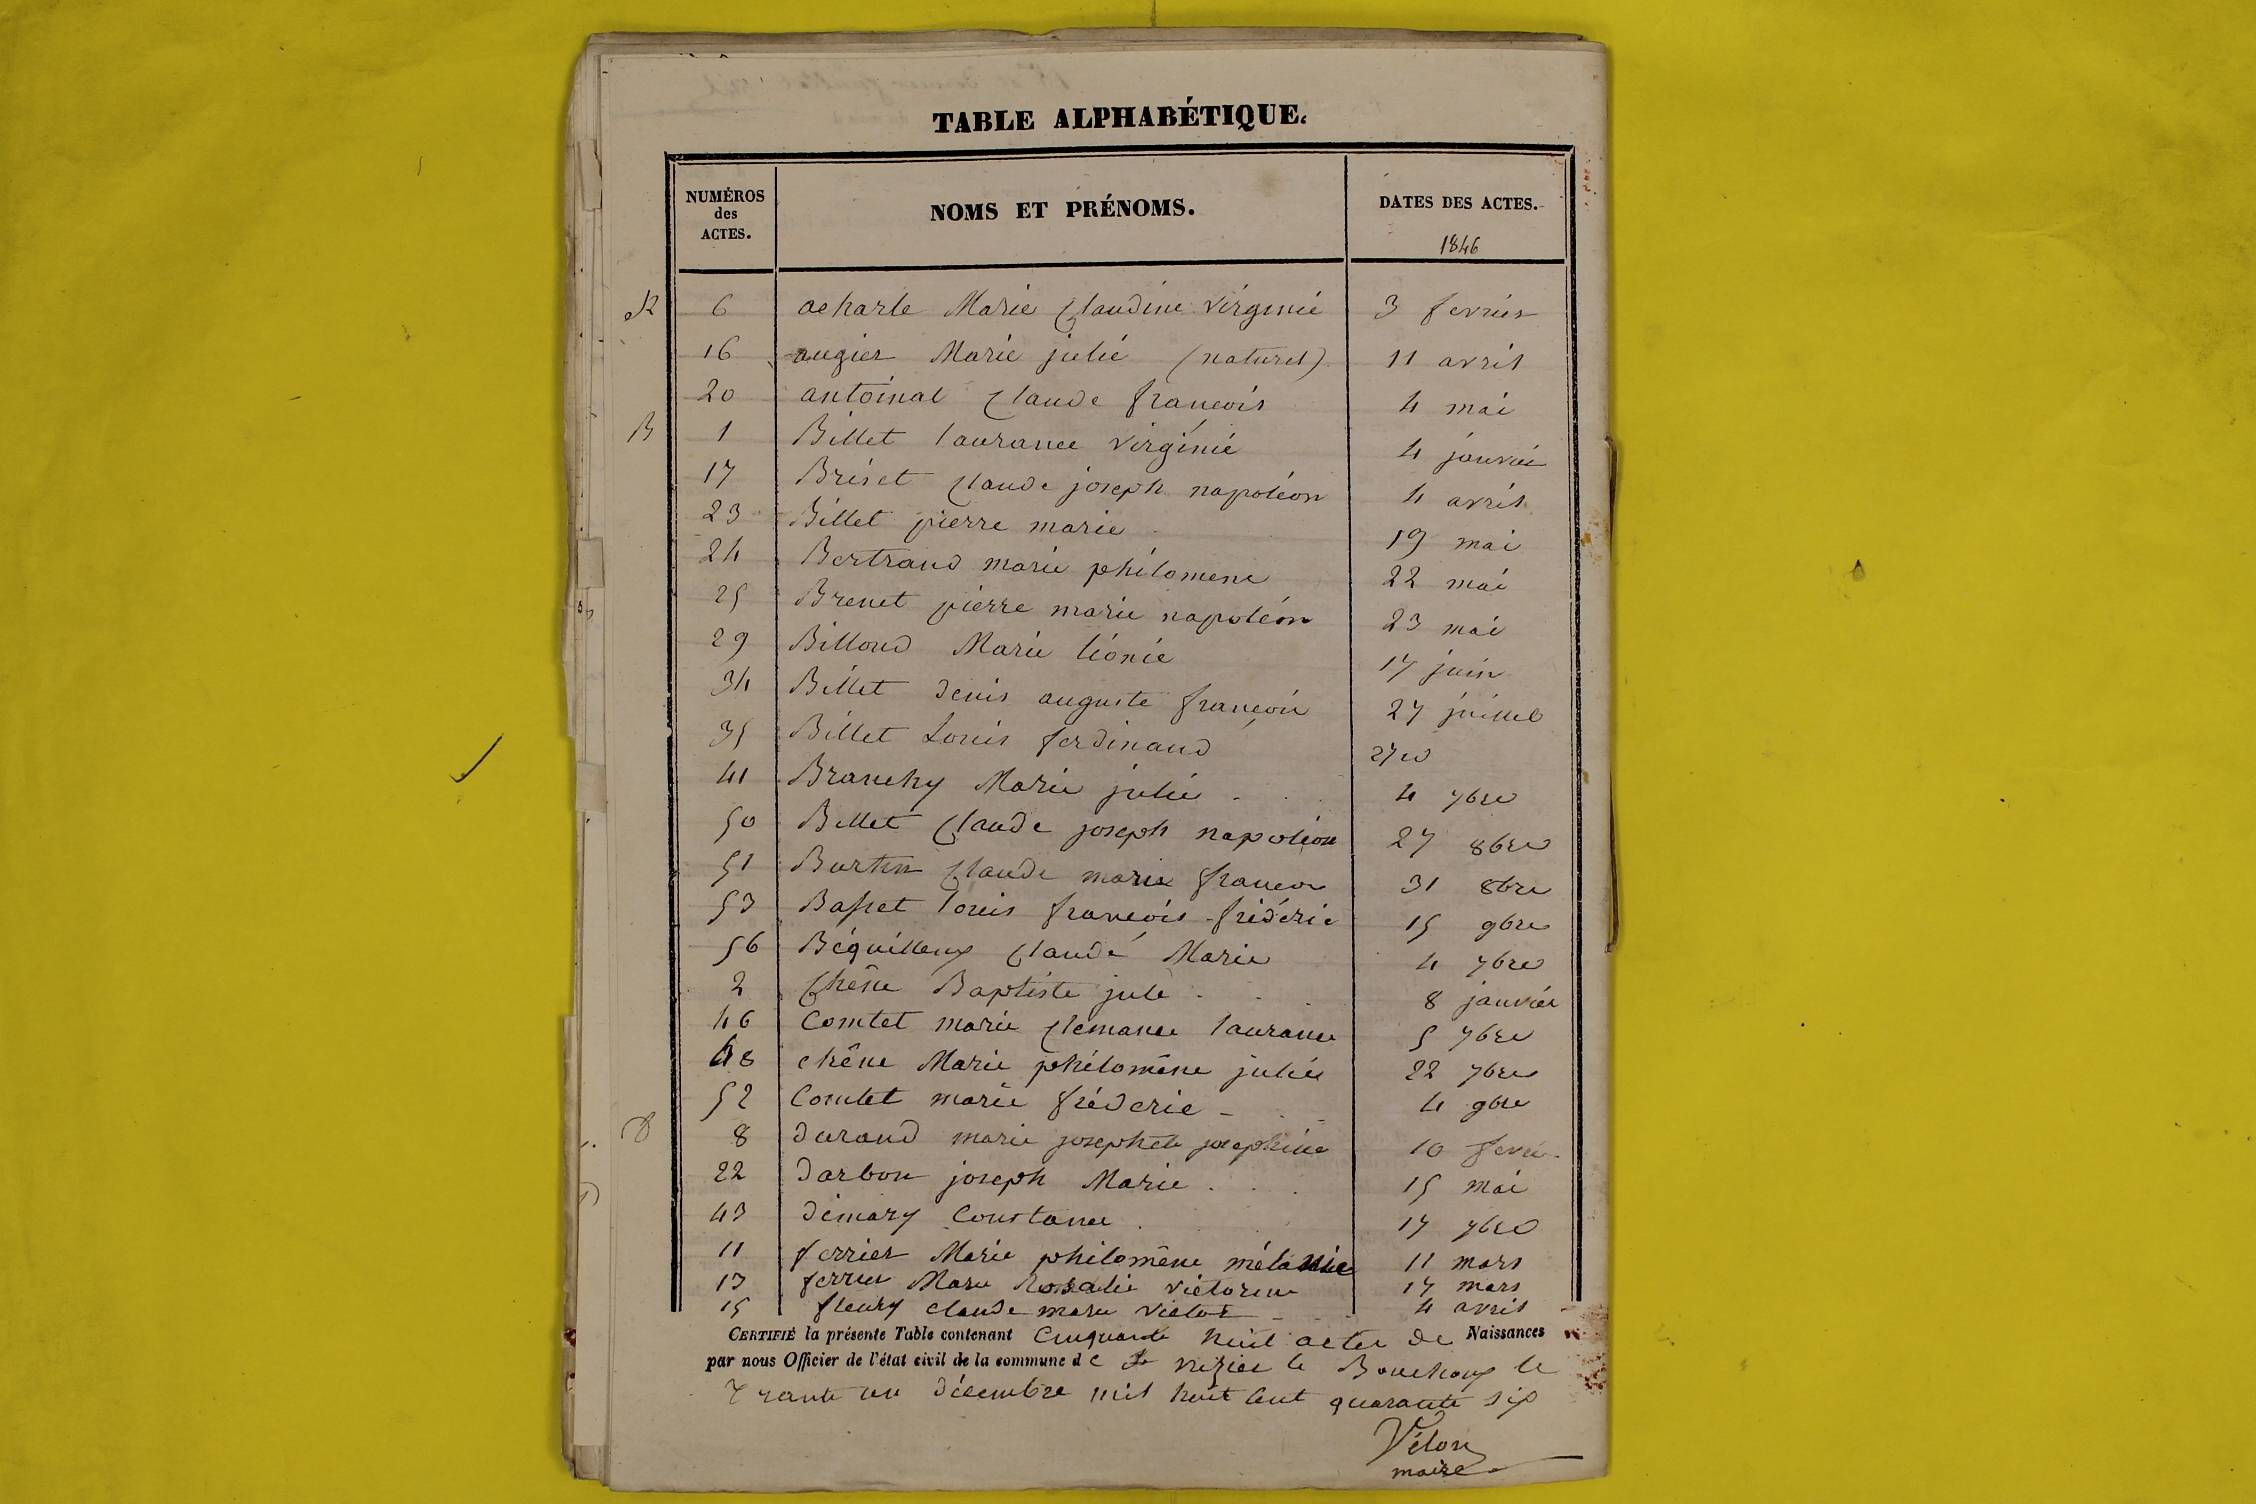 TABLE ALPHABÉTIQUE.
NUMÉROS des ACTES. NOMS ET PRÉNOMS. DATES DES ACTES.
1846
A 6 acharle Marie Claudine virginie 3 fevrier
16 augier Marie julie (naturel) 11 avril
20 antoinat Claude francois 4 mai
B 1 Billet laurance virginie 4 janvier
17 Briset Claude joseph napoléon 4 avril
23 Billet pierre marie 19 mai
24 Bertrand marie philomene 22 mai
25 Brenet pierre marie napoléon 23 mai
29 Billoud Marie léonie 17 juin
34 Billet denis auguste francois 27 juillet
35 Billet Louis ferdinand 27 d
41 Branchy Marie julie 4 7bre
50 Billet Claude joseph napoléon 27 8bre
51 Burtin Claude marie francois 31 8bre
53 Basset louis francois fréderic 15 9bre
56 Béquilleux Claude Marie 4 7bre
2 Chêne Baptiste jule 8 janvier
46 Comtet marie Clemance laurance 5 7bre
48 chêne Marie philomène julie 22 7bre
52 Comtet marie fréderic 4 9bre
D 8 durand marie josephete josephine 10 fevri
22 darbon joseph Marie 15 mai
43 démary Constance 17 7bre
11 ferrier Marie philomène mélanie 11 mars
13 ferrier Marie Rosalie victorine 17 mars
15 fleury claude marie victor 4 avril
CERTIFIÉ la présente Table contenant Cinquante huit actes de Naissances
par nous Officier de l'état civil de la commune de St nizier le Bouchoux le
Trante un décembre mil huit cent quarante six
Vélon
maire